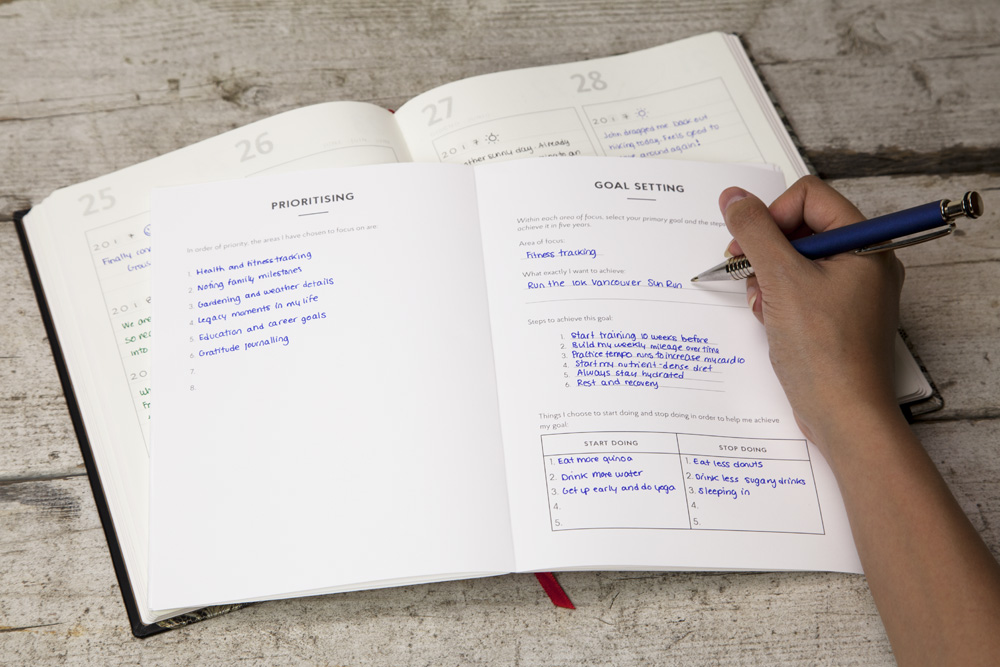 25
26
27
28
201
Finally
201
We are
into
20
2017
sunny day. Already
2017
John dragged me back out
hiking today. Feels good to
around again!
PRIORITISING
In order of priority, the areas I have chosen to focus on are:
1. Health and fitness tracking
2. Noting family milestones
3. Gardening and weather details
4. Legacy moments in my life
5. Education and career goals
6. Gratitude journalling
7.
8.
GOAL SETTING
Within each area of focus, select your primary goal and the steps
achieve it in five years.
Area of focus:
Fitness tracking
What exactly I want to achieve:
Run the 10k Vancouver Sun Run
Steps to achieve this goal:
1. Start training 10 weeks before
2. Build my weekly mileage over time
3. Practice tempo runs to increase my cardio
4. Start my nutrient-dense diet
5. Always stay hydrated
6. Rest and recovery
Things I choose to start doing and stop doing in order to help me achieve
my goal:
START DOING
STOP DOING
1. Eat more quinoa
1. Eat less donuts
2. Drink more water
2. Drink less sugary drinks
3. Get up early and do yoga
3. Sleeping in
4.
4.
5.
5.